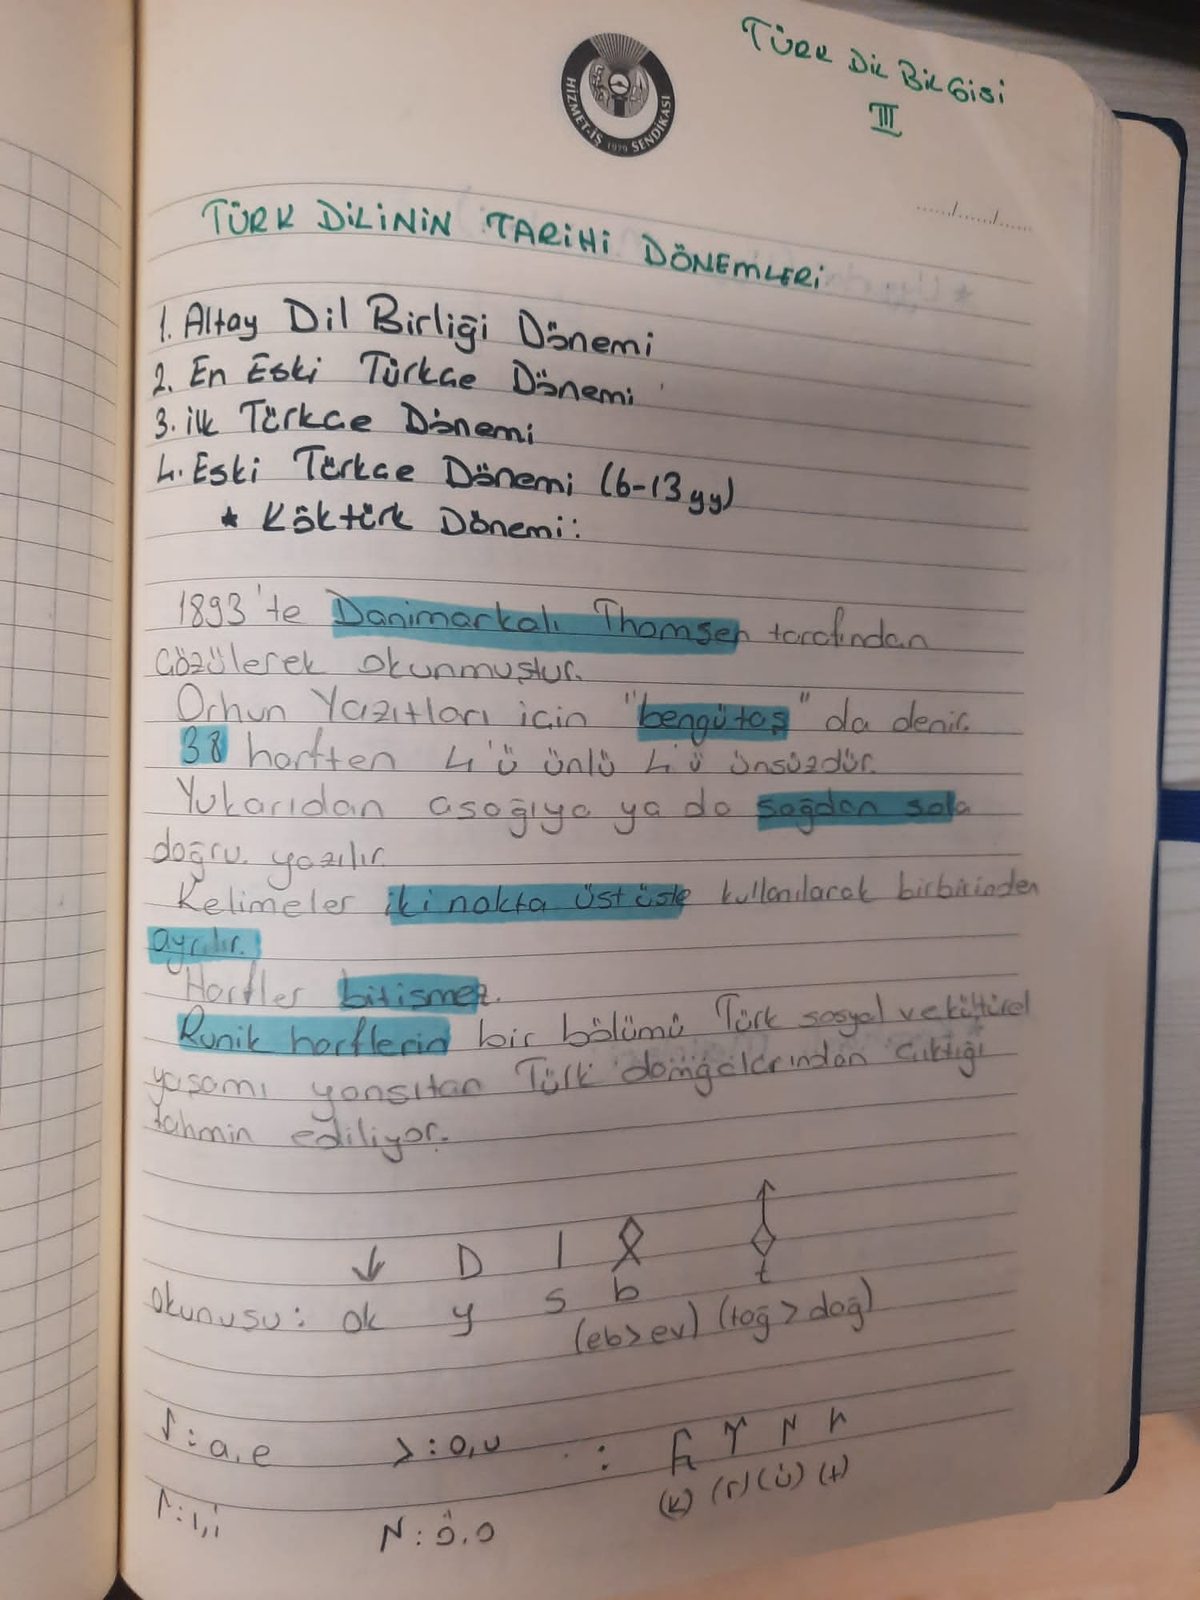 TÜRK DİL BİLGİSİ
III
HİZMET-İŞ SENDİKASI
1979
...../...../.....
TÜRK DİLİNİN TARİHİ DÖNEMLERİ
1. Altay Dil Birliği Dönemi
2. En Eski Türkçe Dönemi
3. İlk Türkçe Dönemi
4. Eski Türkçe Dönemi (6-13 yy)
* Köktürk Dönemi:
1893'te Danimarkalı Thomsen tarafından
çözülerek okunmuştur.
Orhun Yazıtları için "bengütaş" da denir.
38 harften 4'ü ünlü 4'ü ünsüzdür.
Yukarıdan aşağıya ya da sağdan sola
doğru yazılır.
Kelimeler iki nokta üst üste kullanılarak birbirinden
ayrılır.
Harfler bitişmez.
Runik harflerin bir bölümü Türk sosyal ve kültürel
yaşamı yansıtan Türk damgalarından çıktığı
tahmin ediliyor.
okunuşu: ok y s b t
(eb>ev) (tağ>dağ)
: a, e : o, u :
(k) (r) (ü) (t)
: ı, i : ö, ü